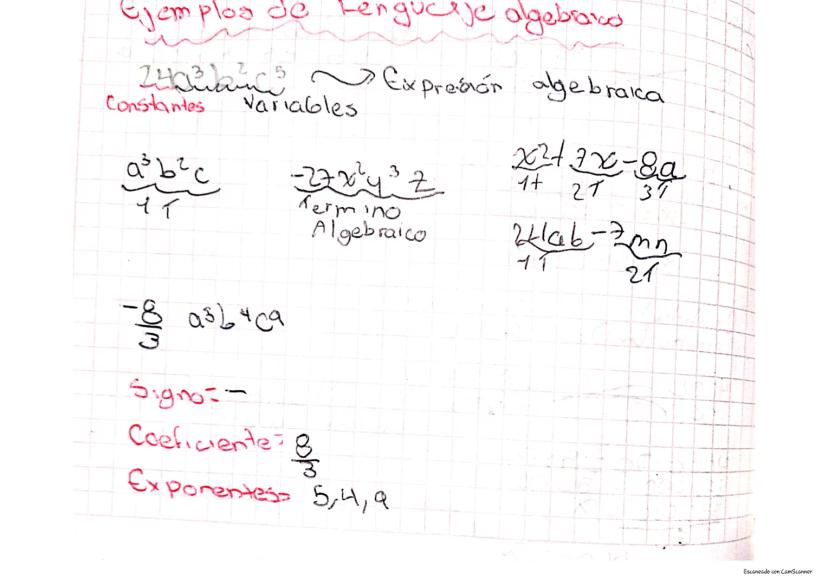 Ejemplos de Lenguaje algebraico
24a³b²c⁵ → Expresión algebraica
Constantes Variables
a³b²c
1T
-27x²y³z
Termino
Algebraico
x2+7x-8a
1t 2T 3T
24ab-7mn
1T 2T
-8/3 a³b⁴c9
Signo= -
Coeficiente= 8/3
Exponentes= 5,4,9
Escaneado con CamScanner